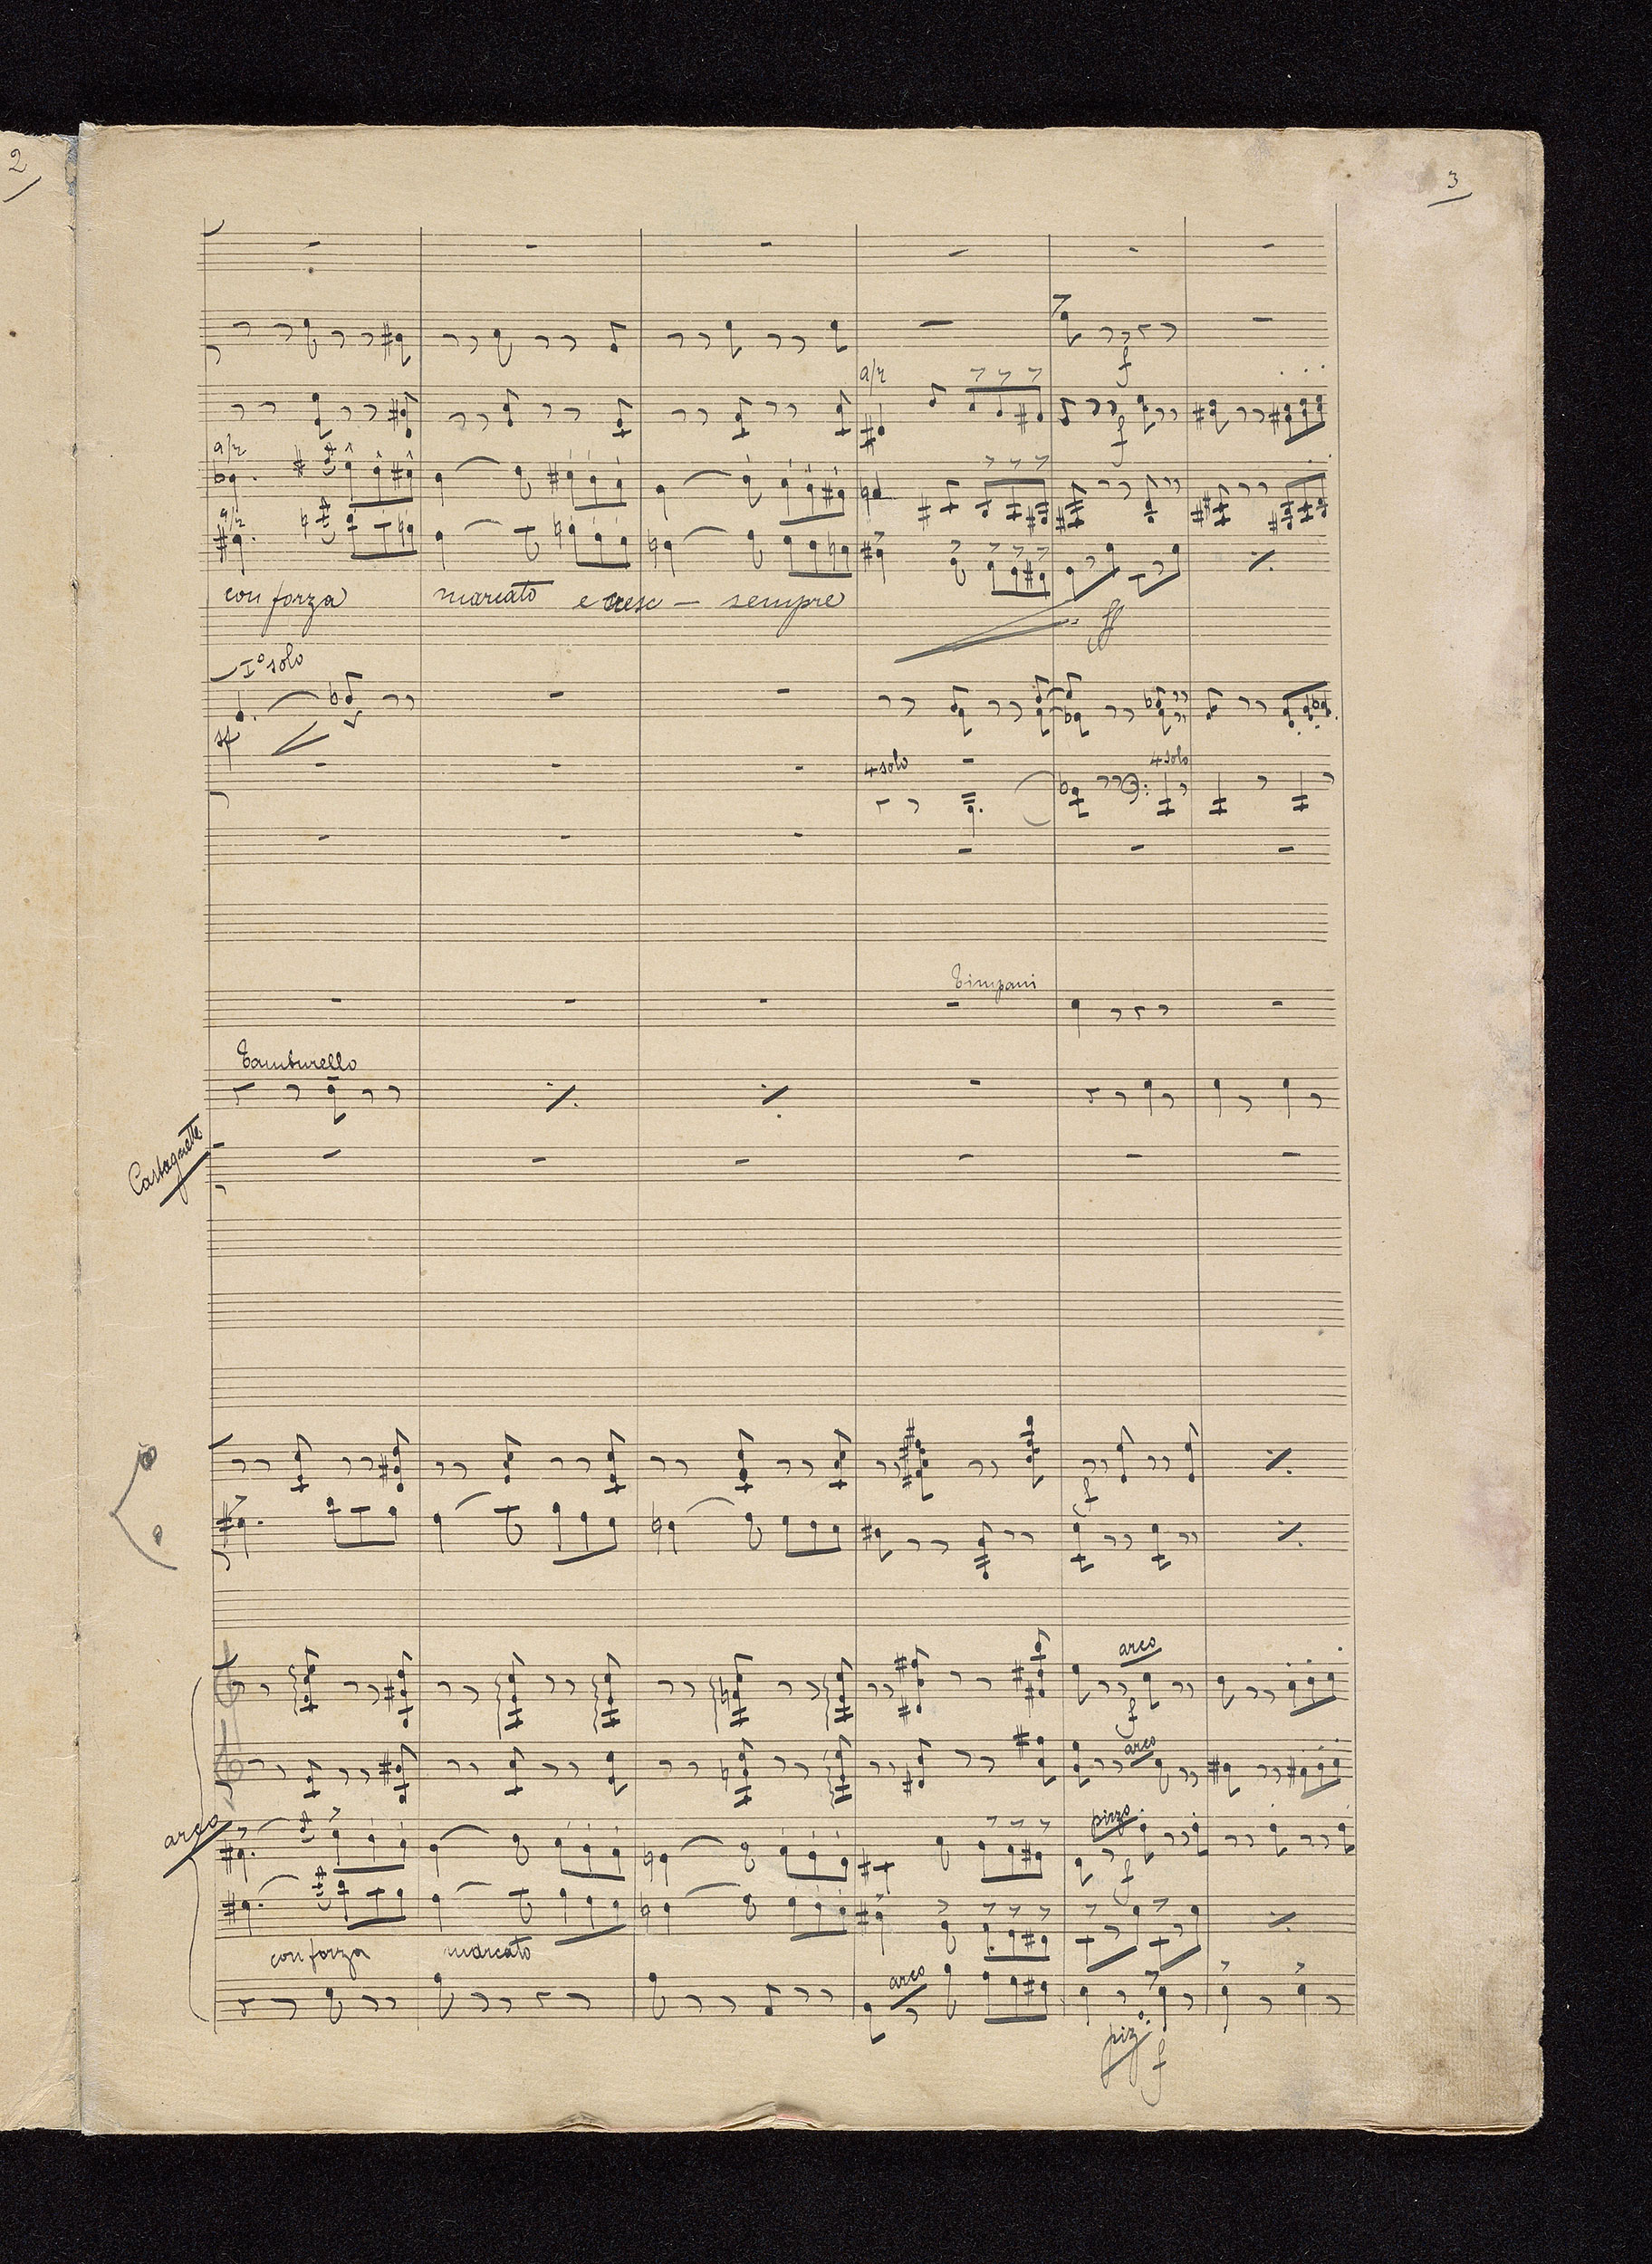 2
3
a/2
a/2
a/2
con forza marcato e cresc – sempre
ff
f
f
I° solo
sf
4 solo
4 solo
Timpani
Tamburello
Castagnette
f
arco
f
arco
arco
pizzo
f
con forza marcato
arco
piz°
f